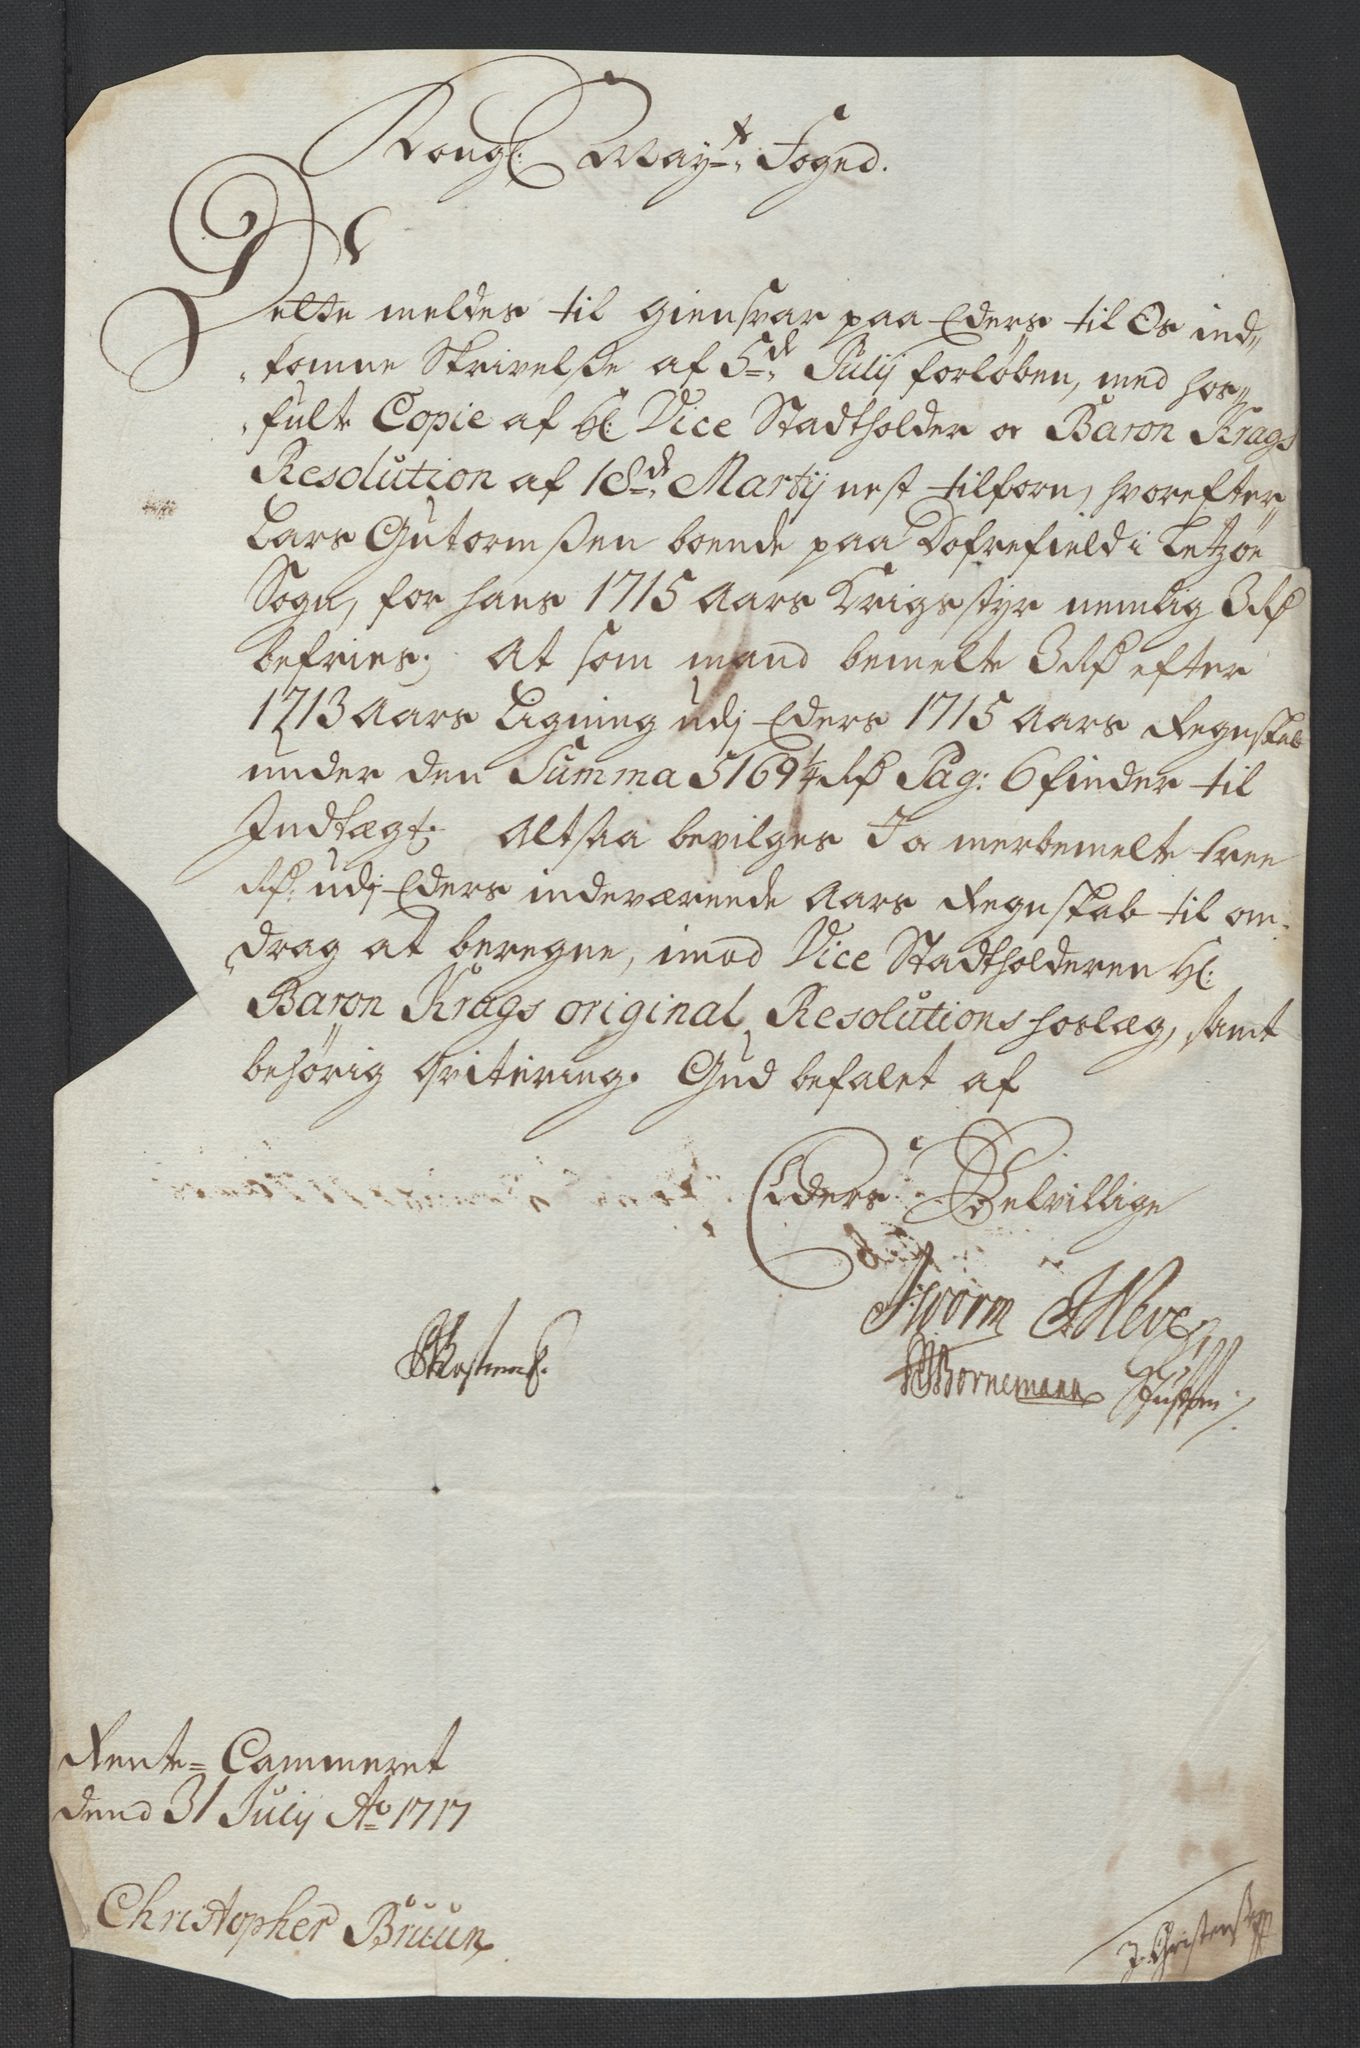 Kongl: May:ts Foged.
Dette meldes til giensvar paa Eders til Os ind-
komne Skrivelße af 5.de Julij forløben, med hos-
fult Copie af Hl: Vice Stadtholder og Baron Krags
Resolution af 18.de Martij nest tilforn, hvorefter
Lars Gutormßen boende paa Dofrefield i Letzøe
Sogn, for hans 1715 Aars Krigsstyr nemlig 3 Rd
befries; At som mand bemelte 3 Rd efter
1713 Aars Ligning udj Eders 1715 Aars Regnskab
under den Summa 5169¼ Rd Pag: 6 finder til
Indtægt. Altsaa bevilges I og merbemelte tree
Rd: udj Eders indeværende Aars Regnskab til om-
drag at beregne, imod Vice Stadtholderen Hl:
Baron Krags original Resolutions hoslæg, samt
behørig Qvitering. Gud befalet af
Eders Velvillige
Worm
Neve
Bornemann
Rente-Cammeret
dend 31 July Ao 1717
Christopher Bruun
J. Christenßen